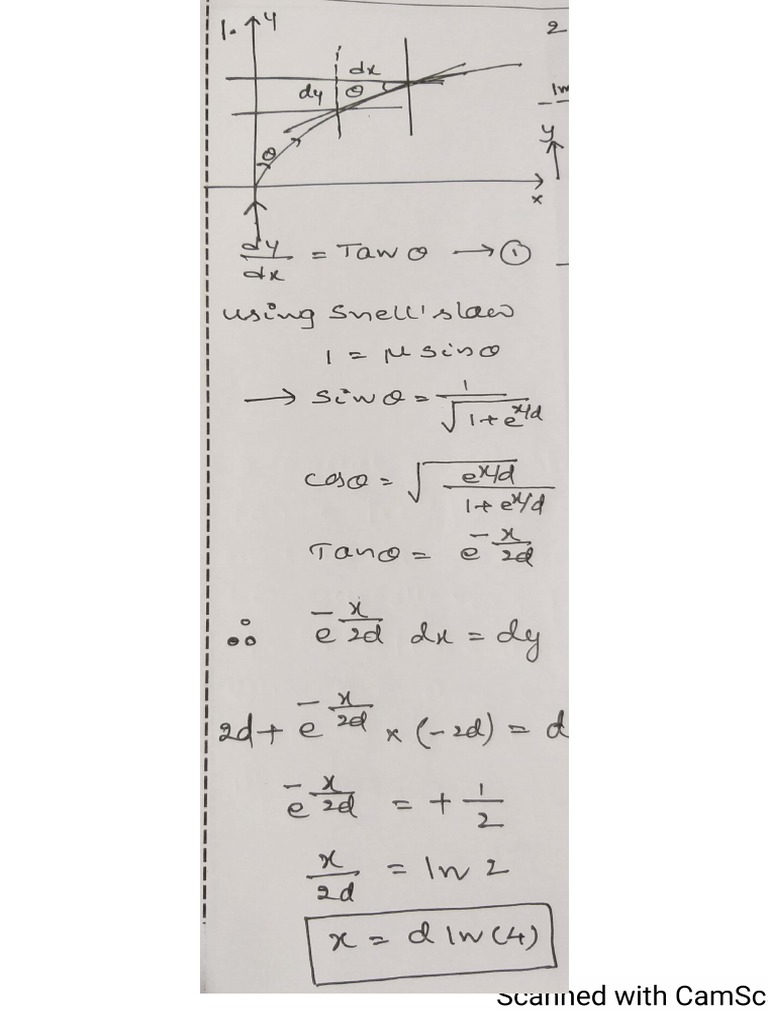 1. y
2
dx
dy θ
1m
y
θ
x
dy/dx = Tanθ → ①
using Snell's law
1 = μ sinθ
→ sinθ = 1/√(1+e^(x/d))
cosθ = √(e^(x/d)/(1+e^(x/d)))
Tanθ = e^(-x/2d)
∴ e^(-x/2d) dx = dy
2d + e^(-x/2d) × (-2d) = d
e^(-x/2d) = + 1/2
x/2d = ln 2
x = d ln(4)
Scanned with CamSc